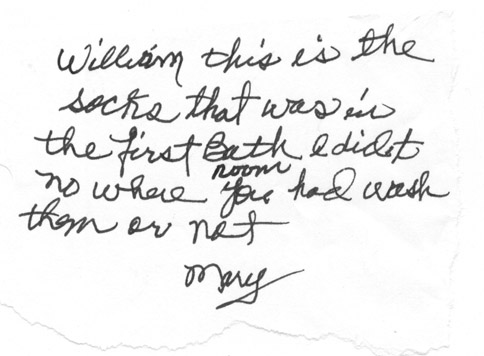 William this is the
socks that was in
the first Bath room I didet
no where you had wash
them or not
Mary